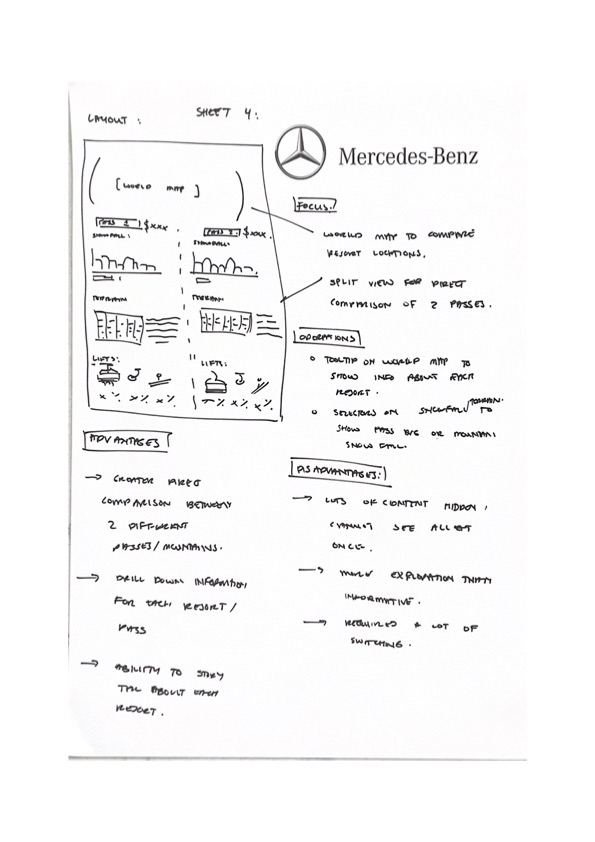 LAYOUT :
SHEET 4 :
Mercedes-Benz
[WORLD MAP]
PASS 1 $xxx
SNOWFALL:
TERRAIN
LIFTS:
x % x % x %
PASS 2 $xxx.
SNOWFALL:
TERRAIN
LIFTS:
% x % x %
FOCUS:
WORLD MAP TO COMPARE
RESORT LOCATIONS.
SPLIT VIEW FOR DIRECT
COMPARISON OF 2 PASSES.
OPERATIONS
TOOLTIP ON WORLD MAP TO
SHOW INFO ABOUT EACH
RESORT.
SELECTORS ON SNOWFALL/TERRAIN TO
SHOW PASS AVG OR MOUNTAIN
SNOW FALL.
ADVANTAGES
→ GREATER DIRECT
COMPARISON BETWEEN
2 DIFFERENT
PASSES/MOUNTAINS.
→ DRILL DOWN INFORMATION
FOR EACH RESORT/
PASS
→ ABILITY TO STORY
TELL ABOUT EACH
RESORT.
DISADVANTAGES:
→ LOTS OF CONTENT HIDDEN,
CANNOT SEE ALL AT
ONCE.
→ MORE EXPLORATION THAN
INFORMATIVE.
→ REQUIRED A LOT OF
SWITCHING.